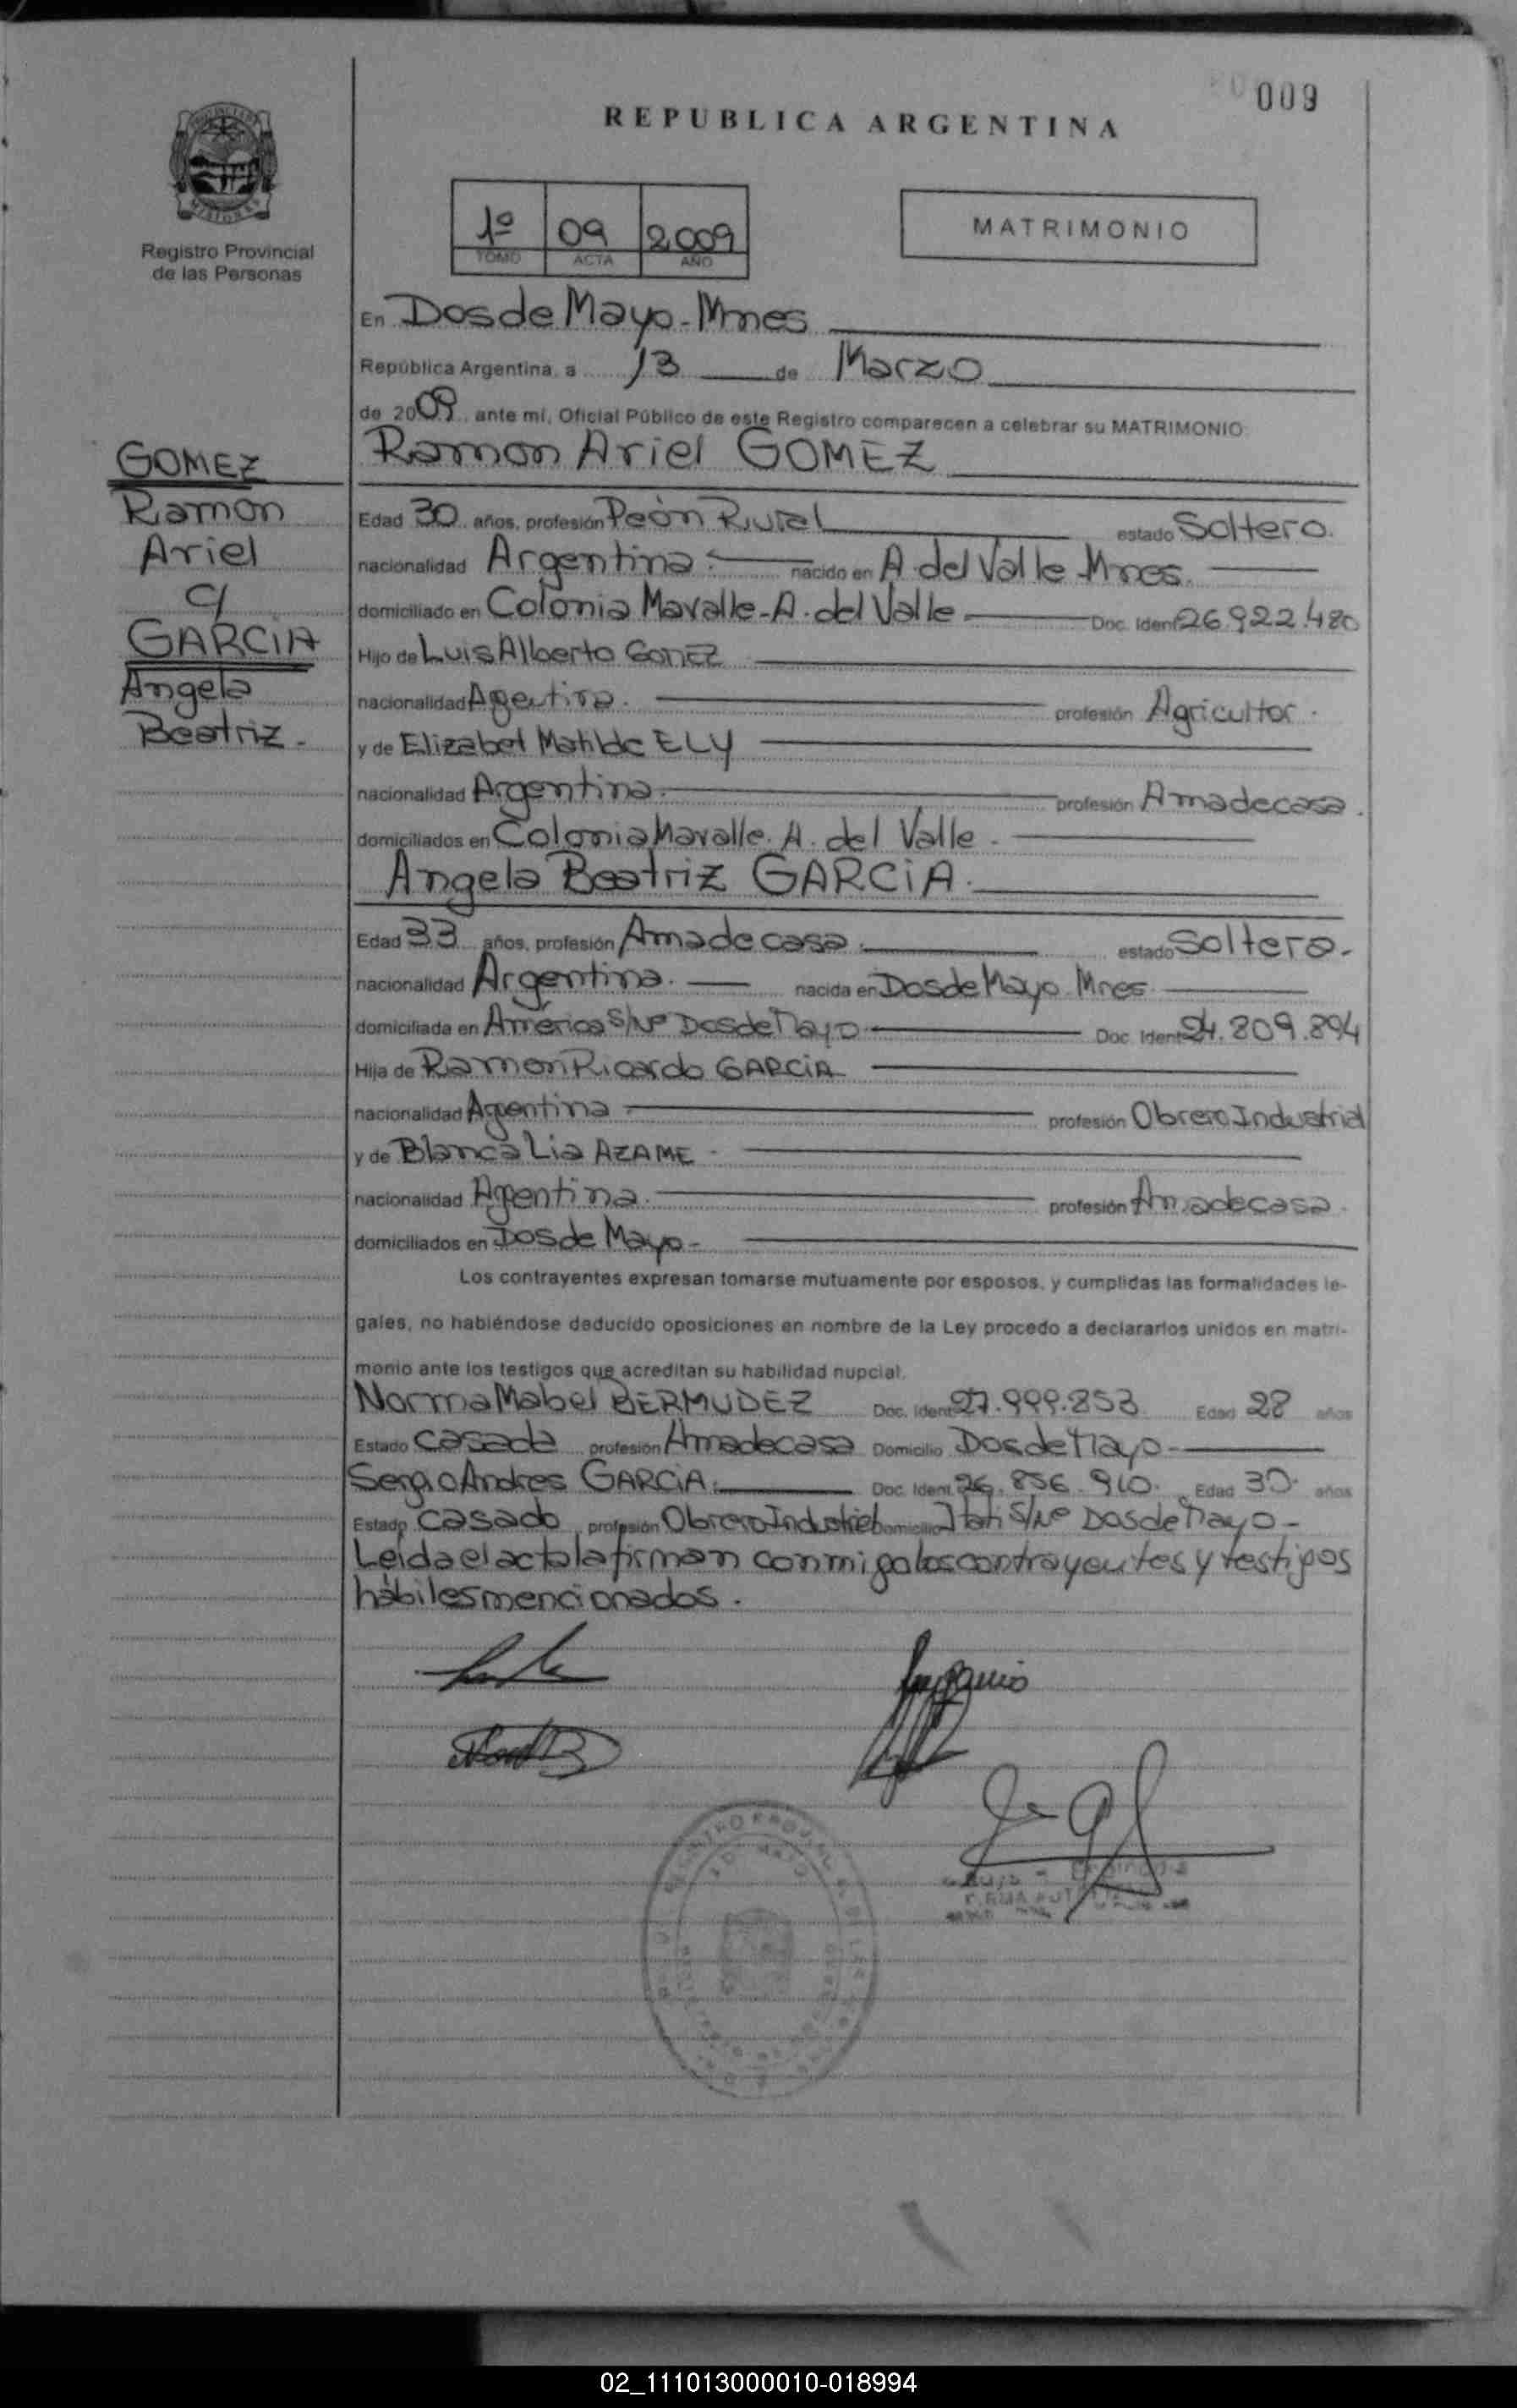 009
REPUBLICA ARGENTINA
Registro Provincial
de las Personas
1º 09 2009
TOMO ACTA AÑO
MATRIMONIO
GOMEZ
Ramon
Ariel
c/
GARCiA
Angela
Beatriz.-
En Dos de Mayo - Mnes
República Argentina, a 13 de Marzo
de 2009 ante mí, Oficial Público de este Registro comparecen a celebrar su MATRIMONIO:
Ramon Ariel GOMEZ
Edad 30 años, profesión Peòn Rural estado Soltero.
nacionalidad Argentina.- nacido en A. del Valle Mnes.
domiciliado en Colonia Mavalle - A. del Valle Doc. Ident 26.922.480
Hijo de Luis Alberto GOMEZ
nacionalidad Argentina. profesión Agricultor.
y de Elizabet Matilde ELY
nacionalidad Argentina. profesión Ama de casa.
domiciliados en Colonia Mavalle. A. del Valle.
Angela Beatriz GARCiA.
Edad 33 años, profesión Ama de casa. estado Soltera.
nacionalidad Argentina. nacida en Dos de Mayo Mnes.
domiciliada en America S/Nº Dos de Mayo Doc. Ident 24.809.894
Hija de Ramon Ricardo GARCiA
nacionalidad Argentina profesión Obrero Industrial
y de Blanca Lia AZAME.
nacionalidad Argentina. profesión Ama de casa.
domiciliados en Dos de Mayo.-
Los contrayentes expresan tomarse mutuamente por esposos, y cumplidas las formalidades le-
gales, no habiéndose deducido oposiciones en nombre de la Ley procedo a declararlos unidos en matri-
monio ante los testigos que acreditan su habilidad nupcial.
Norma Mabel BERMUDEZ Doc. Ident 27.999.853 Edad 28 años
Estado Casada profesión Ama de casa Domicilio Dos de Mayo.-
Sergio Andres GARCiA. Doc. Ident. 26.856.910. Edad 30 años
Estado Casado profesión Obrero Industrial Domicilio Itati S/Nº Dos de Mayo-
Leida el acta la firman conmigo los contrayentes y testigos
hàbiles mencionados.
02_111013000010-018994